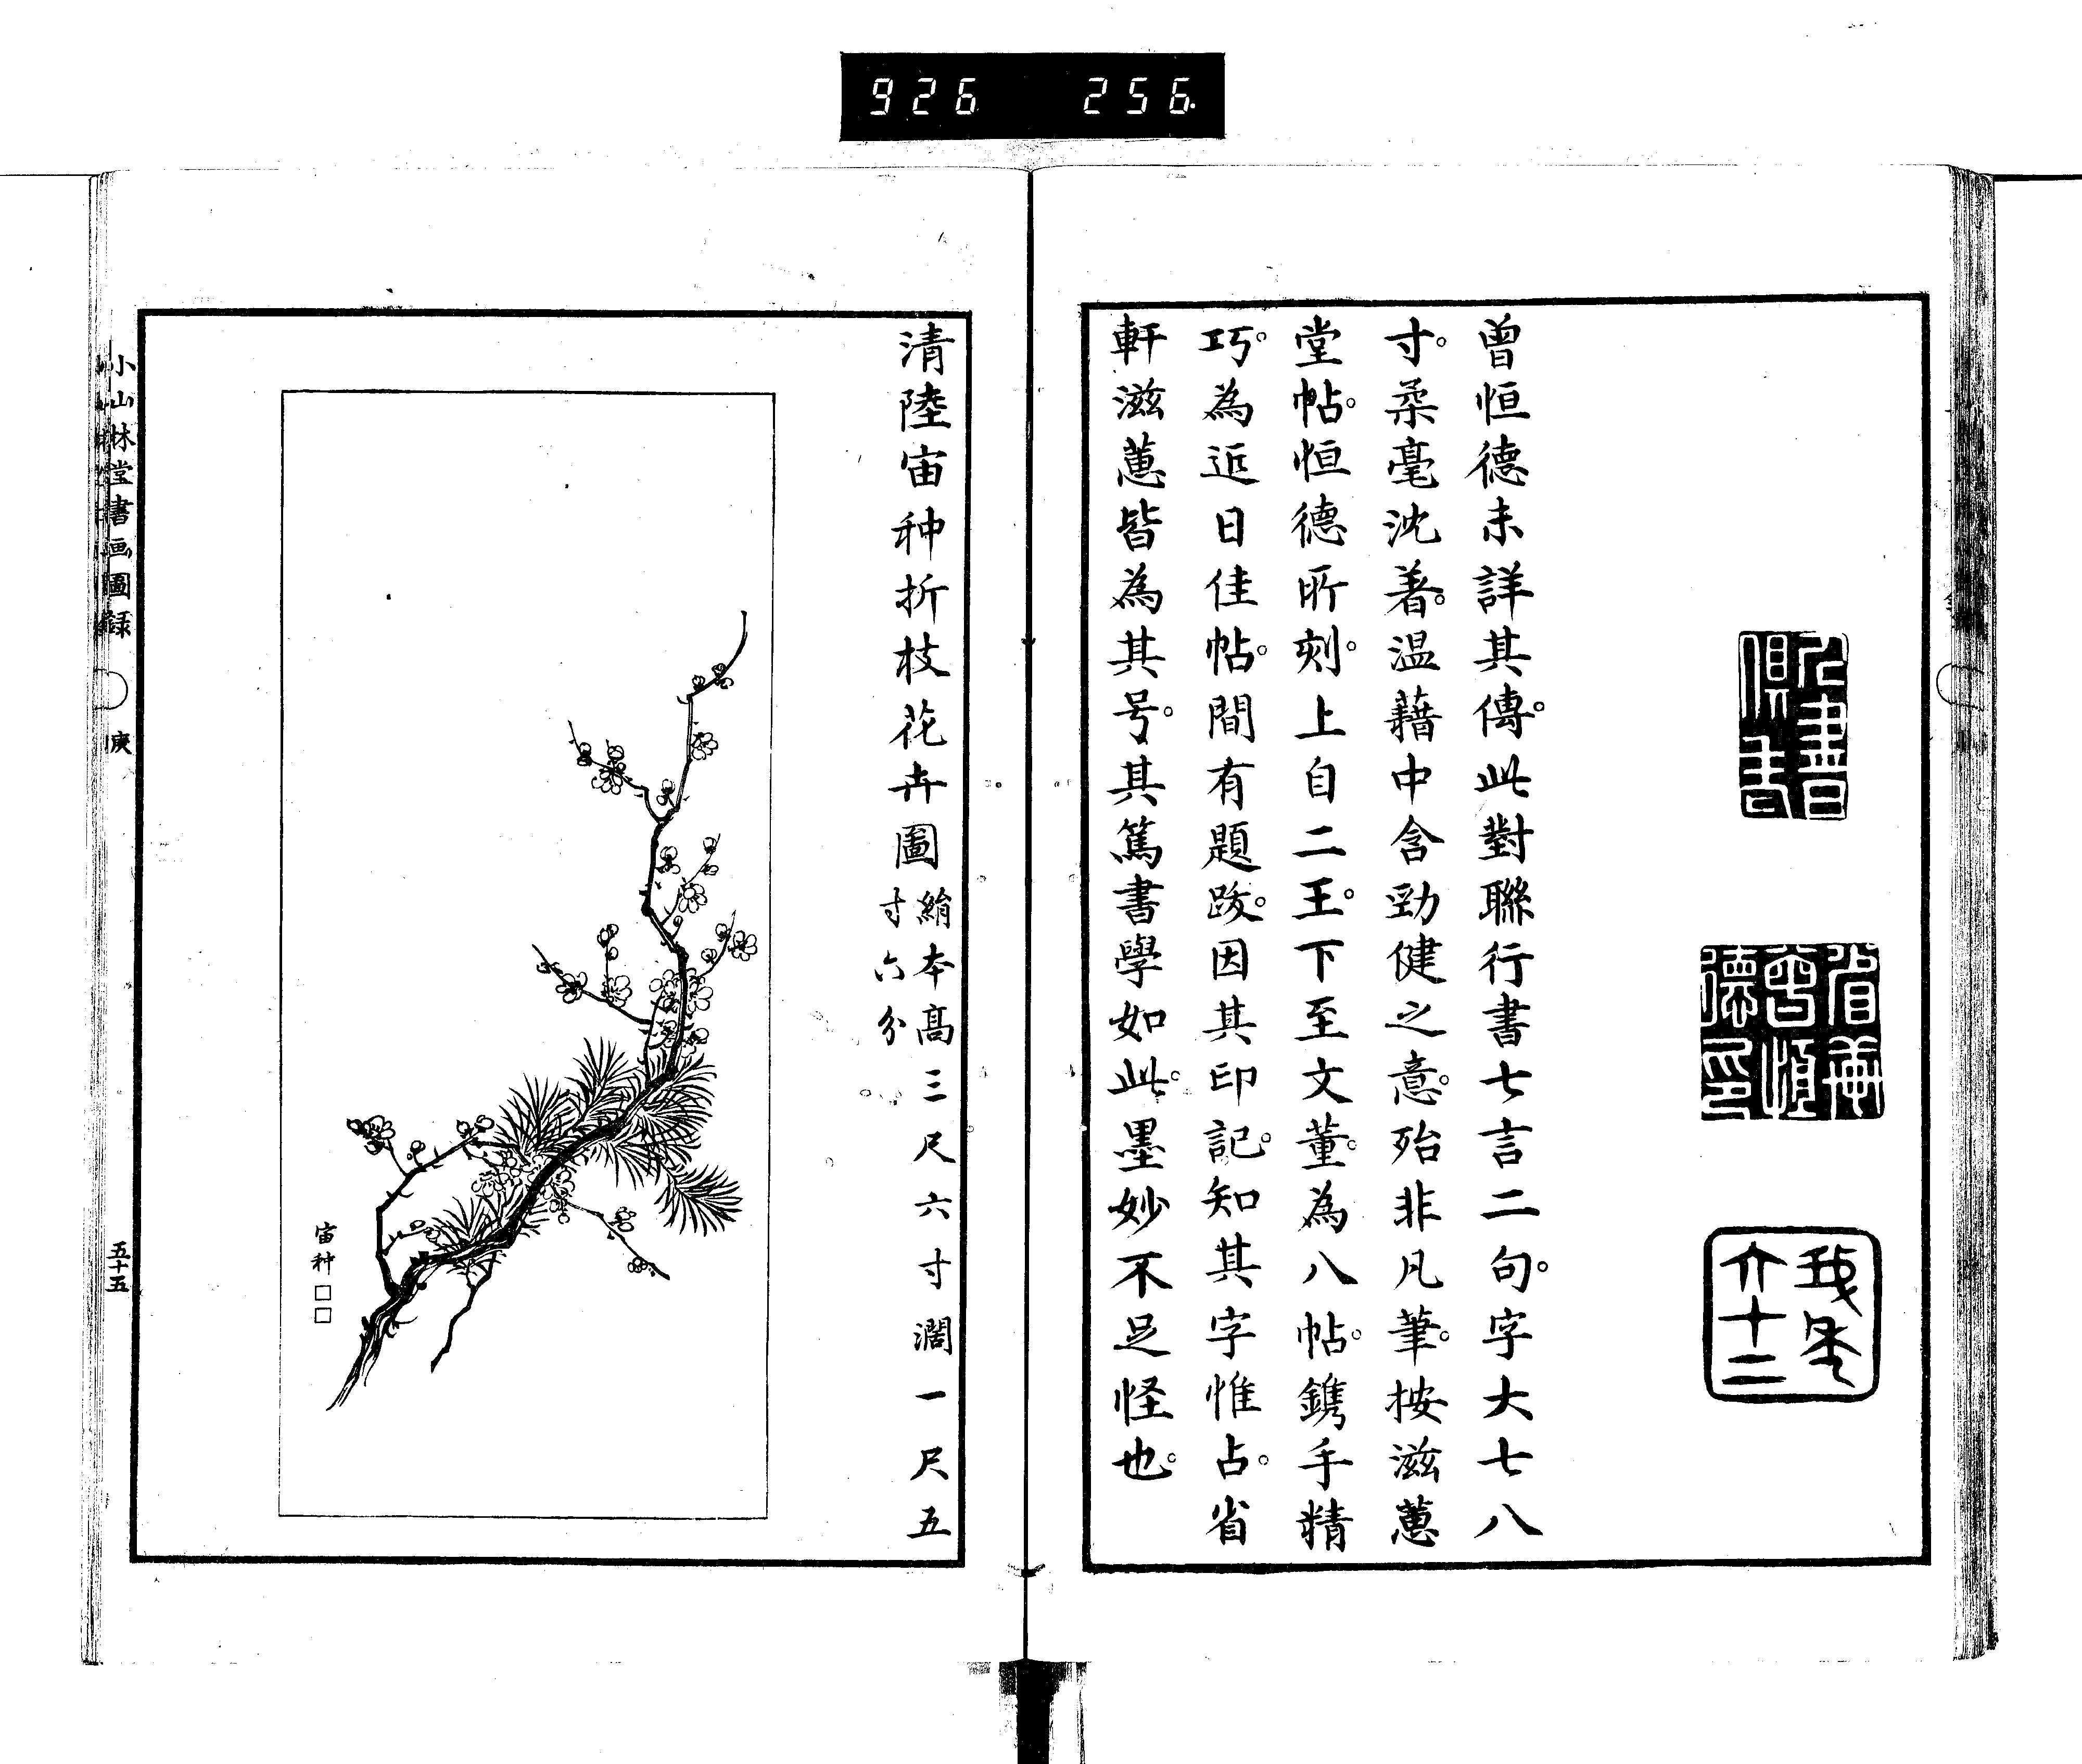 926 256.
曾恒德未詳其傳。此對聯行書七言二句。字大七八
寸。柔毫沈著。温藉中含勁健之意。殆非凡筆。按滋蕙
堂帖。恒德所刻。上自二王。下至文董。為八帖。鐫手精
巧。為近日佳帖。間有題跋。因其印記。知其字惟占。省
軒滋蕙皆為其号。其篤書學如此。墨妙不足怪也。
清陸宙种折枝花卉圖 絹本高三尺六寸濶一尺五
寸六分
宙种□□
小山林堂書画圖録 庚 五十五